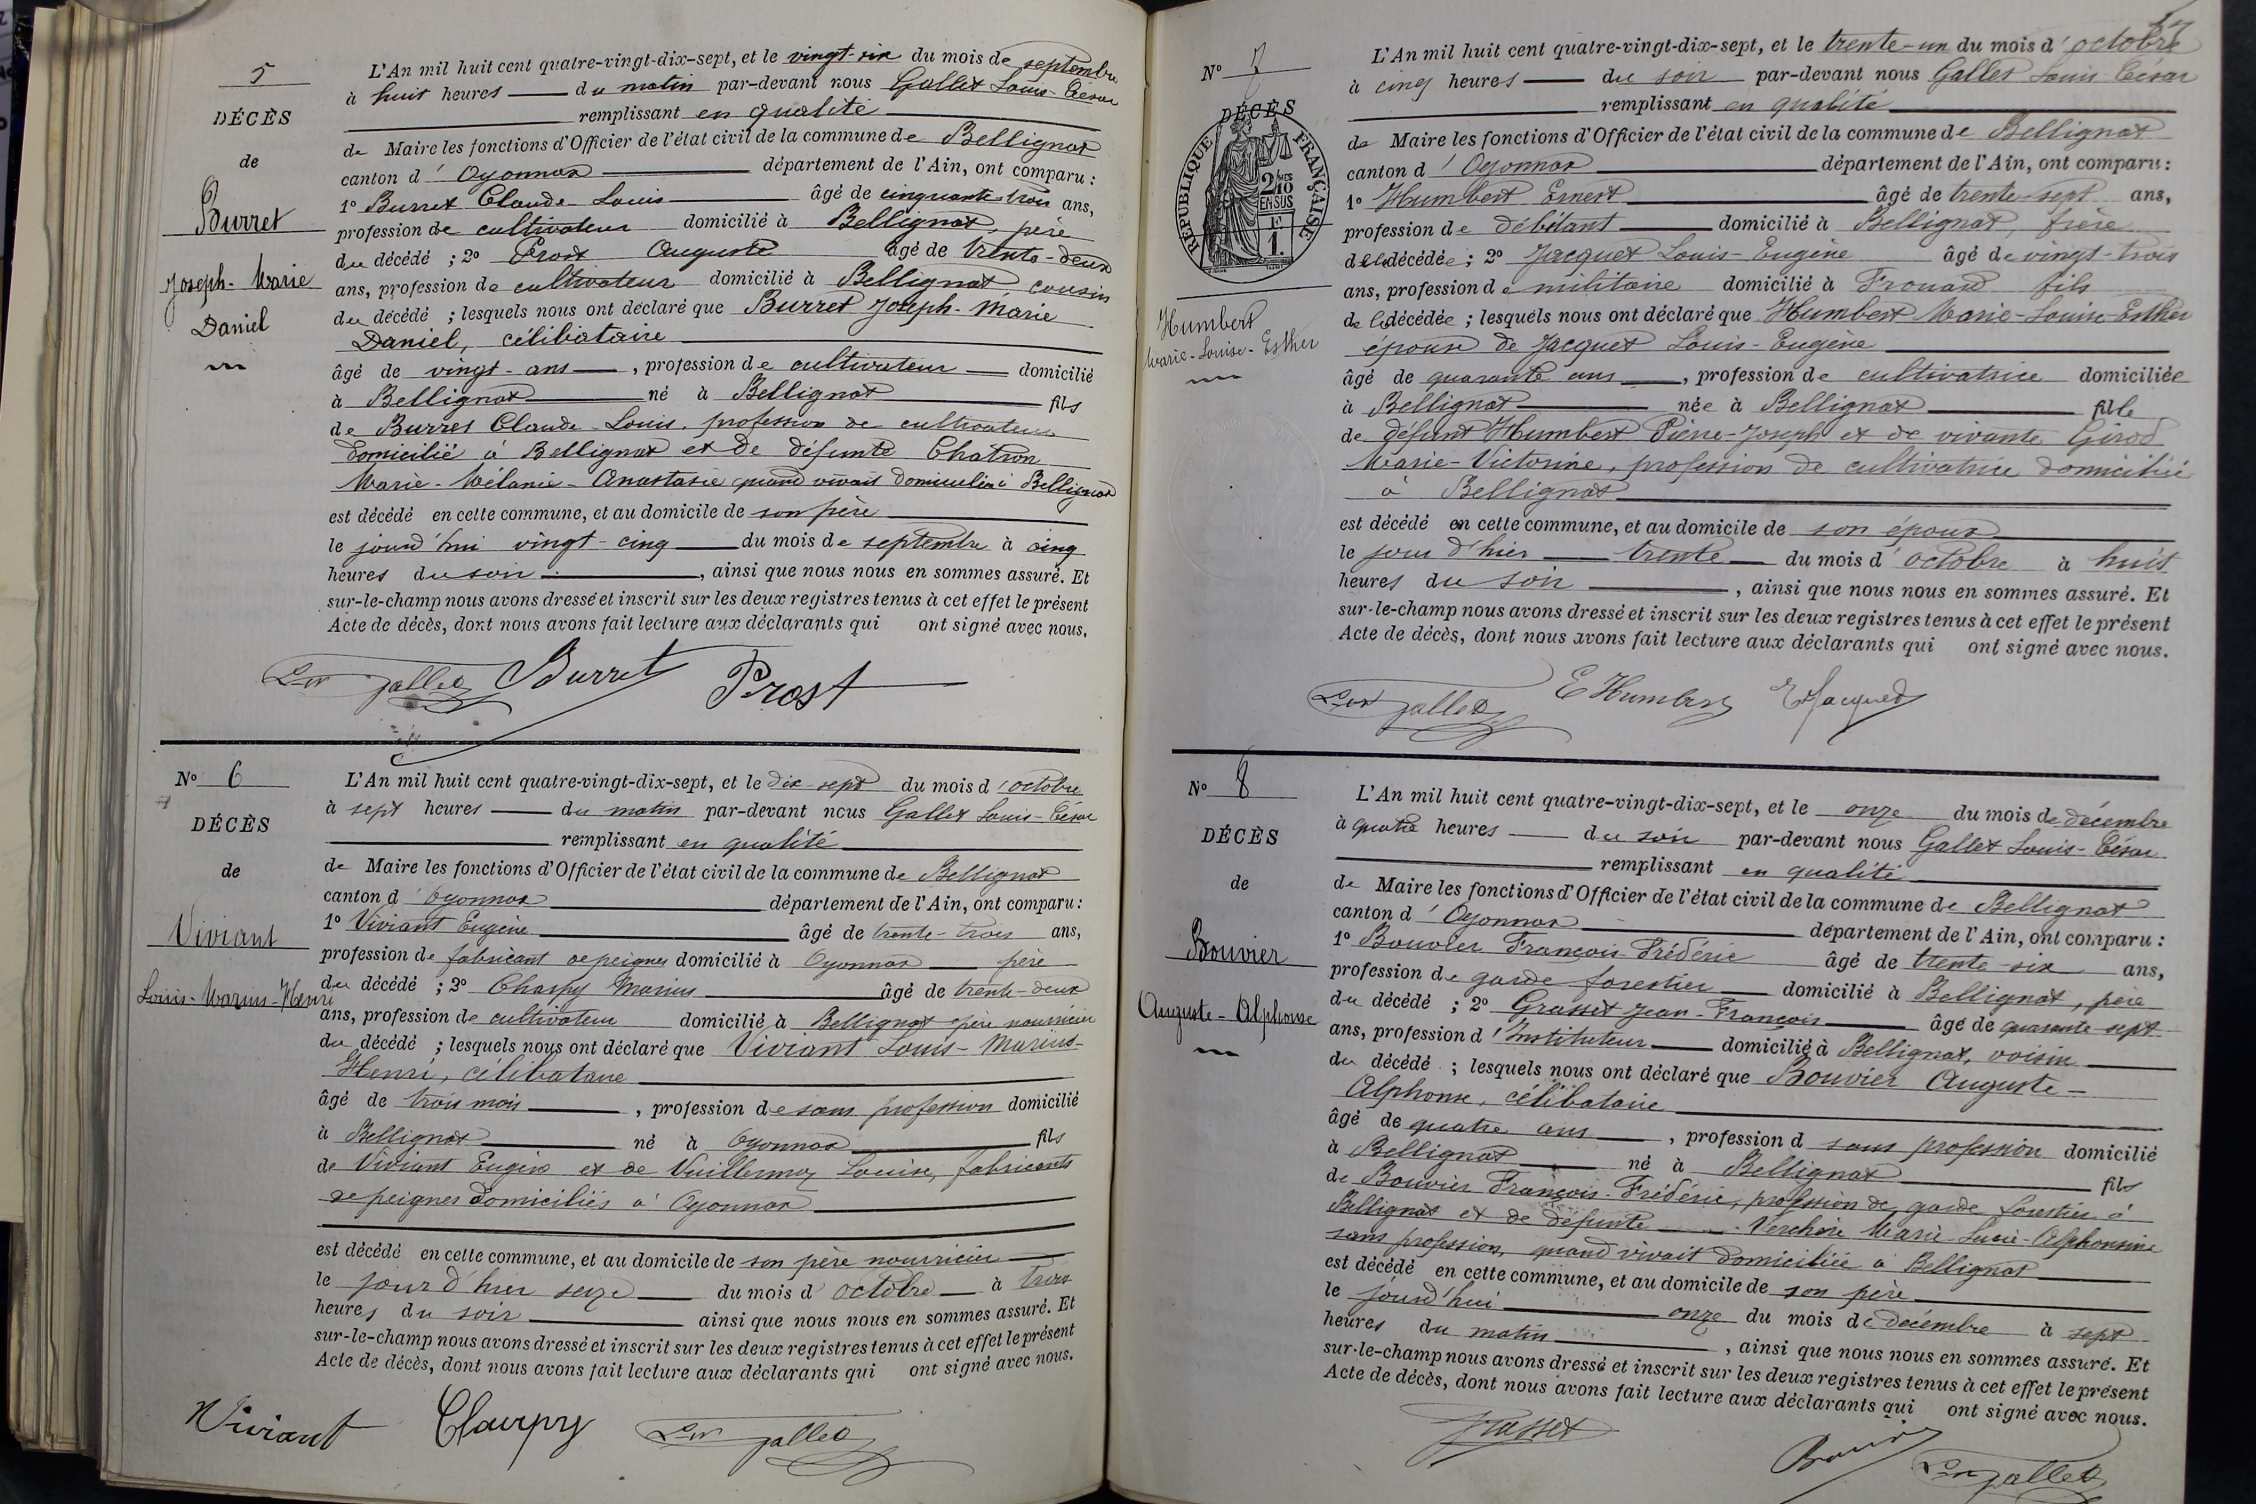 5
DÉCÈS
de
Burret
Joseph-Marie
Daniel
L'An mil huit cent quatre-vingt-dix-sept, et le vingt-six du mois de septembre
à huit heures du matin par-devant nous Gallet Louis-César
remplissant en qualité
de Maire les fonctions d'Officier de l'état civil de la commune de Bellignat
canton d'Oyonnax département de l'Ain, ont comparu :
1º Burret Claude Louis âgé de cinquante-trois ans,
profession de cultivateur domicilié à Bellignat, père
du décédé ; 2º Prost Auguste âgé de trente-deux
ans, profession de cultivateur domicilié à Bellignat, cousin
du décédé ; lesquels nous ont déclaré que Burret Joseph-Marie
Daniel, célibataire
âgé de vingt-ans, profession de cultivateur domicilié
à Bellignat né à Bellignat fils
de Burret Claude-Louis, profession de cultivateur
domicilié à Bellignat et de défunte Chatron
Marie-Mélanie-Anastasie quand vivait domiciliée à Bellignat
est décédé en cette commune, et au domicile de son père
le jourd'hui vingt-cinq du mois de septembre à cinq
heures du soir, ainsi que nous nous en sommes assuré. Et
sur-le-champ nous avons dressé et inscrit sur les deux registres tenus à cet effet le présent
Acte de décès, dont nous avons fait lecture aux déclarants qui ont signé avec nous.
Gallet Burret Prost
Nº 6
DÉCÈS
de
Viviant
Louis-Marius-Henri
L'An mil huit cent quatre-vingt-dix-sept, et le dix-sept du mois d'octobre
à sept heures du matin par-devant nous Gallet Louis-César
remplissant en qualité
de Maire les fonctions d'Officier de l'état civil de la commune de Bellignat
canton d'Oyonnax département de l'Ain, ont comparu :
1º Viviant Eugène âgé de trente-trois ans,
profession de fabricant de peignes domicilié à Oyonnax père
du décédé ; 2º Charpy Marius âgé de trente-deux
ans, profession de cultivateur domicilié à Bellignat père nourricier
du décédé ; lesquels nous ont déclaré que Viviant Louis-Marius-
Henri, célibataire
âgé de trois mois, profession de sans profession domicilié
à Bellignat né à Oyonnax fils
de Viviant Eugène et de Vuillermoz Louise, fabricants
de peignes domiciliés à Oyonnax
est décédé en cette commune, et au domicile de son père nourricier
le jour d'hier seize du mois d'octobre à trois
heures du soir ainsi que nous nous en sommes assuré. Et
sur-le-champ nous avons dressé et inscrit sur les deux registres tenus à cet effet le présent
Acte de décès, dont nous avons fait lecture aux déclarants qui ont signé avec nous.
Viviant Charpy Gallet
Nº 7
DÉCÈS
RÉPUBLIQUE FRANÇAISE
2/10 EN SUS
1 F.
Humbert
Marie-Louise-Esther
L'An mil huit cent quatre-vingt-dix-sept, et le trente-un du mois d'octobre
à cinq heures du soir par-devant nous Gallet Louis César
remplissant en qualité
de Maire les fonctions d'Officier de l'état civil de la commune de Bellignat
canton d'Oyonnax département de l'Ain, ont comparu :
1º Humbert Ernest âgé de trente-sept ans,
profession de débitant domicilié à Bellignat, frère
de la décédée ; 2º Jacquet Louis-Eugène âgé de vingt-trois
ans, profession de militaire domicilié à Frouard fils
de la décédée ; lesquels nous ont déclaré que Humbert Marie-Louise-Esther
épouse de Jacquet Louis-Eugène
âgé de quarante ans, profession de cultivatrice domiciliée
à Bellignat née à Bellignat fille
de défunt Humbert Pierre-Joseph et de vivante Girod
Marie-Victorine, profession de cultivatrice domiciliée
à Bellignat
est décédé en cette commune, et au domicile de son époux
le jour d'hier trente du mois d'octobre à huit
heures du soir, ainsi que nous nous en sommes assuré. Et
sur-le-champ nous avons dressé et inscrit sur les deux registres tenus à cet effet le présent
Acte de décès, dont nous avons fait lecture aux déclarants qui ont signé avec nous.
Gallet E Humbert Jacquet
Nº 8
DÉCÈS
de
Bouvier
Auguste-Alphonse
L'An mil huit cent quatre-vingt-dix-sept, et le onze du mois de décembre
à quatre heures du soir par-devant nous Gallet Louis-César
remplissant en qualité
de Maire les fonctions d'Officier de l'état civil de la commune de Bellignat
canton d'Oyonnax département de l'Ain, ont comparu :
1º Bouvier François-Frédéric âgé de trente-six ans,
profession de garde forestier domicilié à Bellignat, père
du décédé ; 2º Grasset Jean-François âgé de quarante-sept
ans, profession d'Instituteur domicilié à Bellignat, voisin
du décédé ; lesquels nous ont déclaré que Bouvier Auguste-
Alphonse, célibataire
âgé de quatre ans, profession d sans profession domicilié
à Bellignat né à Bellignat fils
de Bouvier François-Frédéric, profession de garde forestier à
Bellignat et de défunte Verchère Marie-Lucie-Alphonsine
sans profession, quand vivait domiciliée à Bellignat
est décédé en cette commune, et au domicile de son père
le jourd'hui onze du mois de décembre à sept
heures du matin, ainsi que nous nous en sommes assuré. Et
sur-le-champ nous avons dressé et inscrit sur les deux registres tenus à cet effet le présent
Acte de décès, dont nous avons fait lecture aux déclarants qui ont signé avec nous.
Grasset Bouvier Gallet